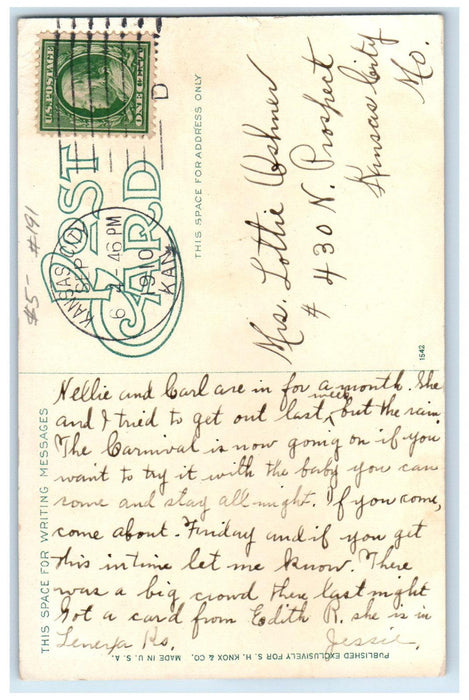 U.S. POSTAGE
ONE CENT
POST CARD
KANSAS CITY
SEP
6 46 PM
1910
KAN.
D
$5- #191
THIS SPACE FOR ADDRESS ONLY
Mrs. Lottie
# 430 N. Prospect
Kansas City
Mo.
1542
THIS SPACE FOR WRITING MESSAGES
Nellie and Carl are in for a month. She
and I tried to get out last week, but the rain.
The Carnival is now going on if you
want to try it with the baby you can
come and stay all night. If you come,
come about Friday and if you get
this in time let me know. There
was a big crowd there last night
Got a card from Edith R. she is in
Lenexa Ks. Jessie.
PUBLISHED EXCLUSIVELY FOR S. H. KNOX & CO. MADE IN U. S. A.